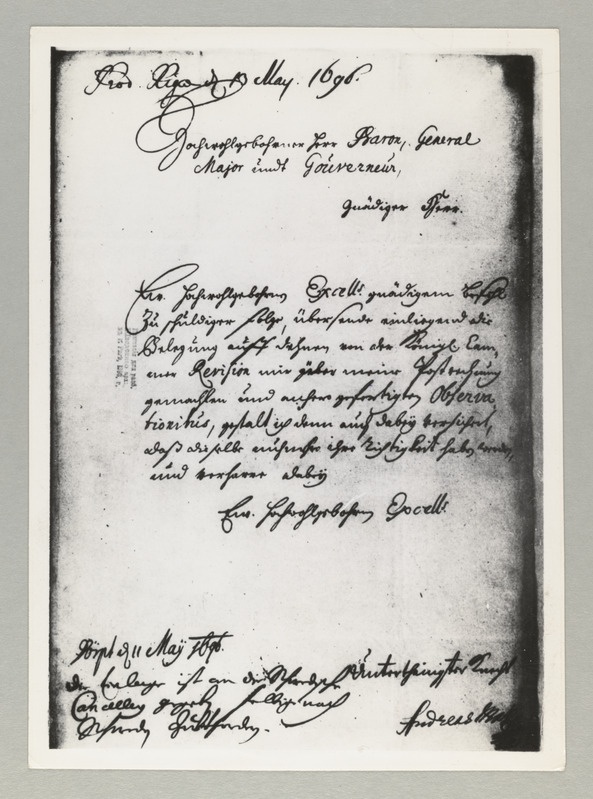 Prod. Riga d 13 May. 1696.
Hochwohlgebohrner Herr Baron, General
Major undt Gouverneur,
gnädiger Herr.
Ew. Hochwohlgebohrn Excell: gnädigem befehl
zu schuldiger folge, übersende einliegend die
Belegung auff dehnen von der Königl. Cam-
mer Revision mir über meine Postrechnung
gemachten und anhero gefertigten Observa
tionibus, gestalt ich denn auch dabey versichert,
daß dieselbe nuhmehr ihre Richtigkeit haben werden,
und verharre dabey
Ew. Hochwohlgebohrn Excell:
Dörpt d 11 Maÿ 1696.
Unterthänigster Knecht
die ist an die
Cancelley nach
Andreas